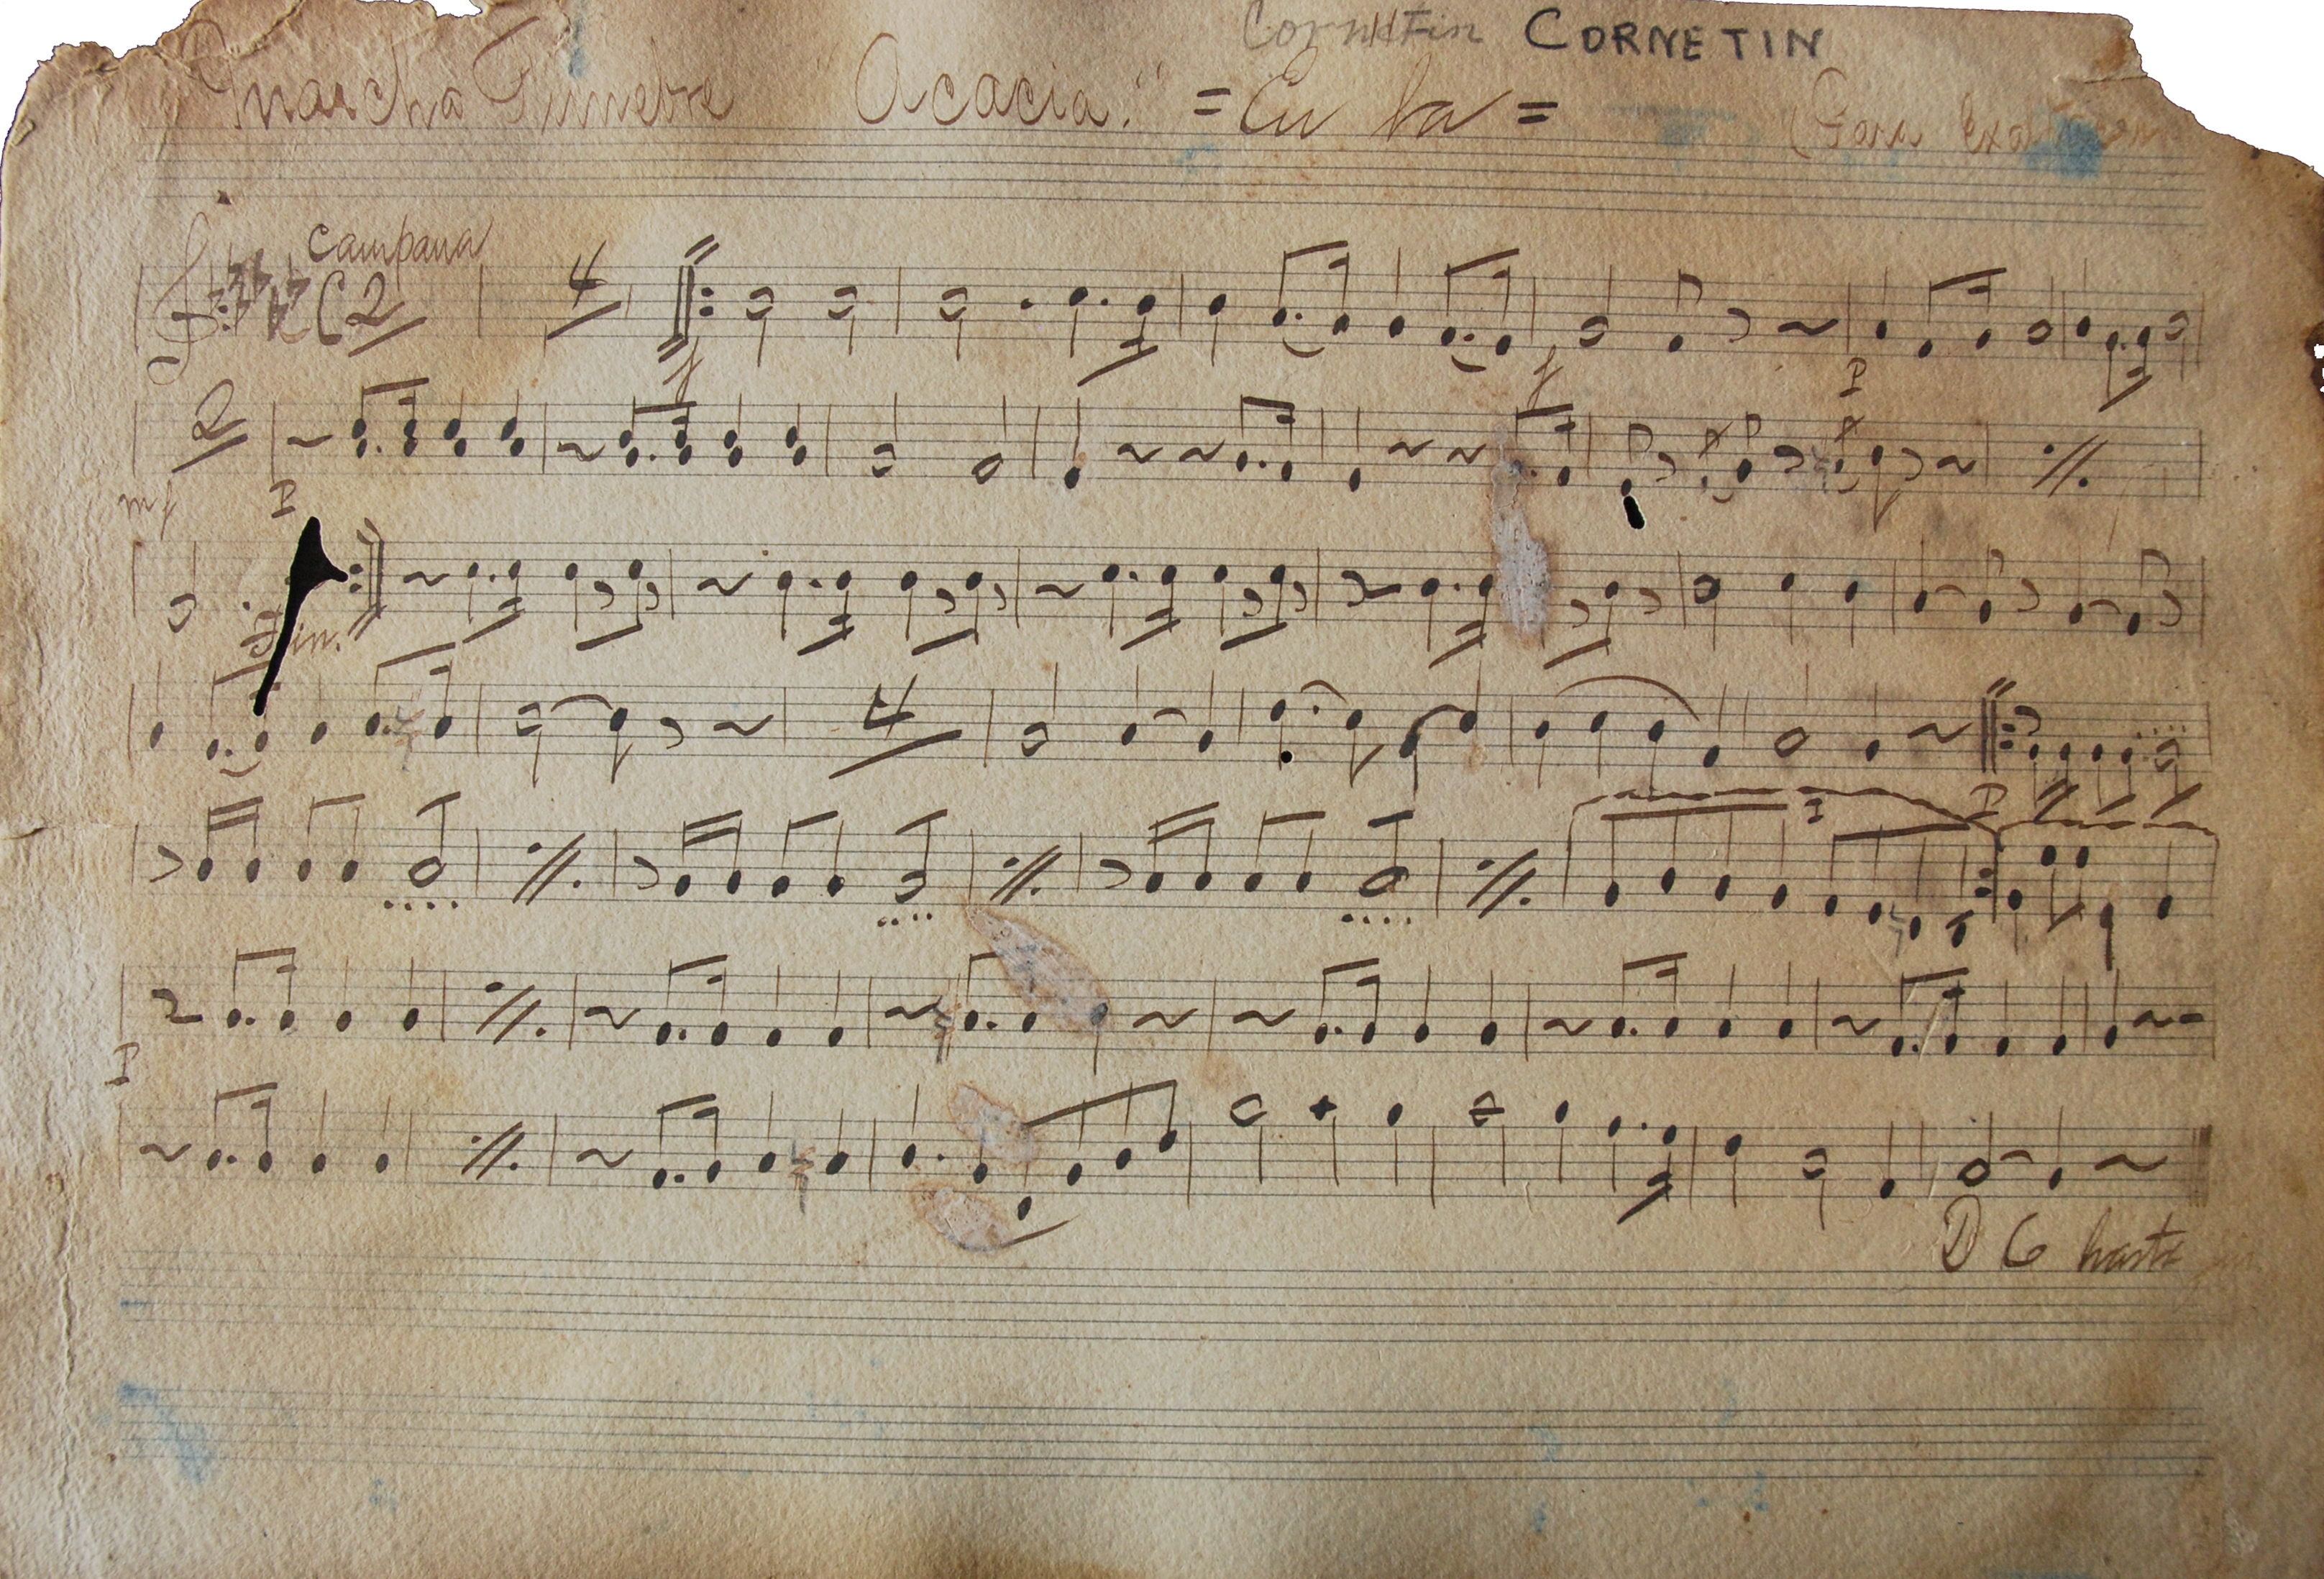 Cornetin CORNETIN
Marcha Funebre "Acacia." = En La =
(Para
Campana
C 2
4
f
f
P
2
mf
P
Fin.
4
P
P
D C hasta